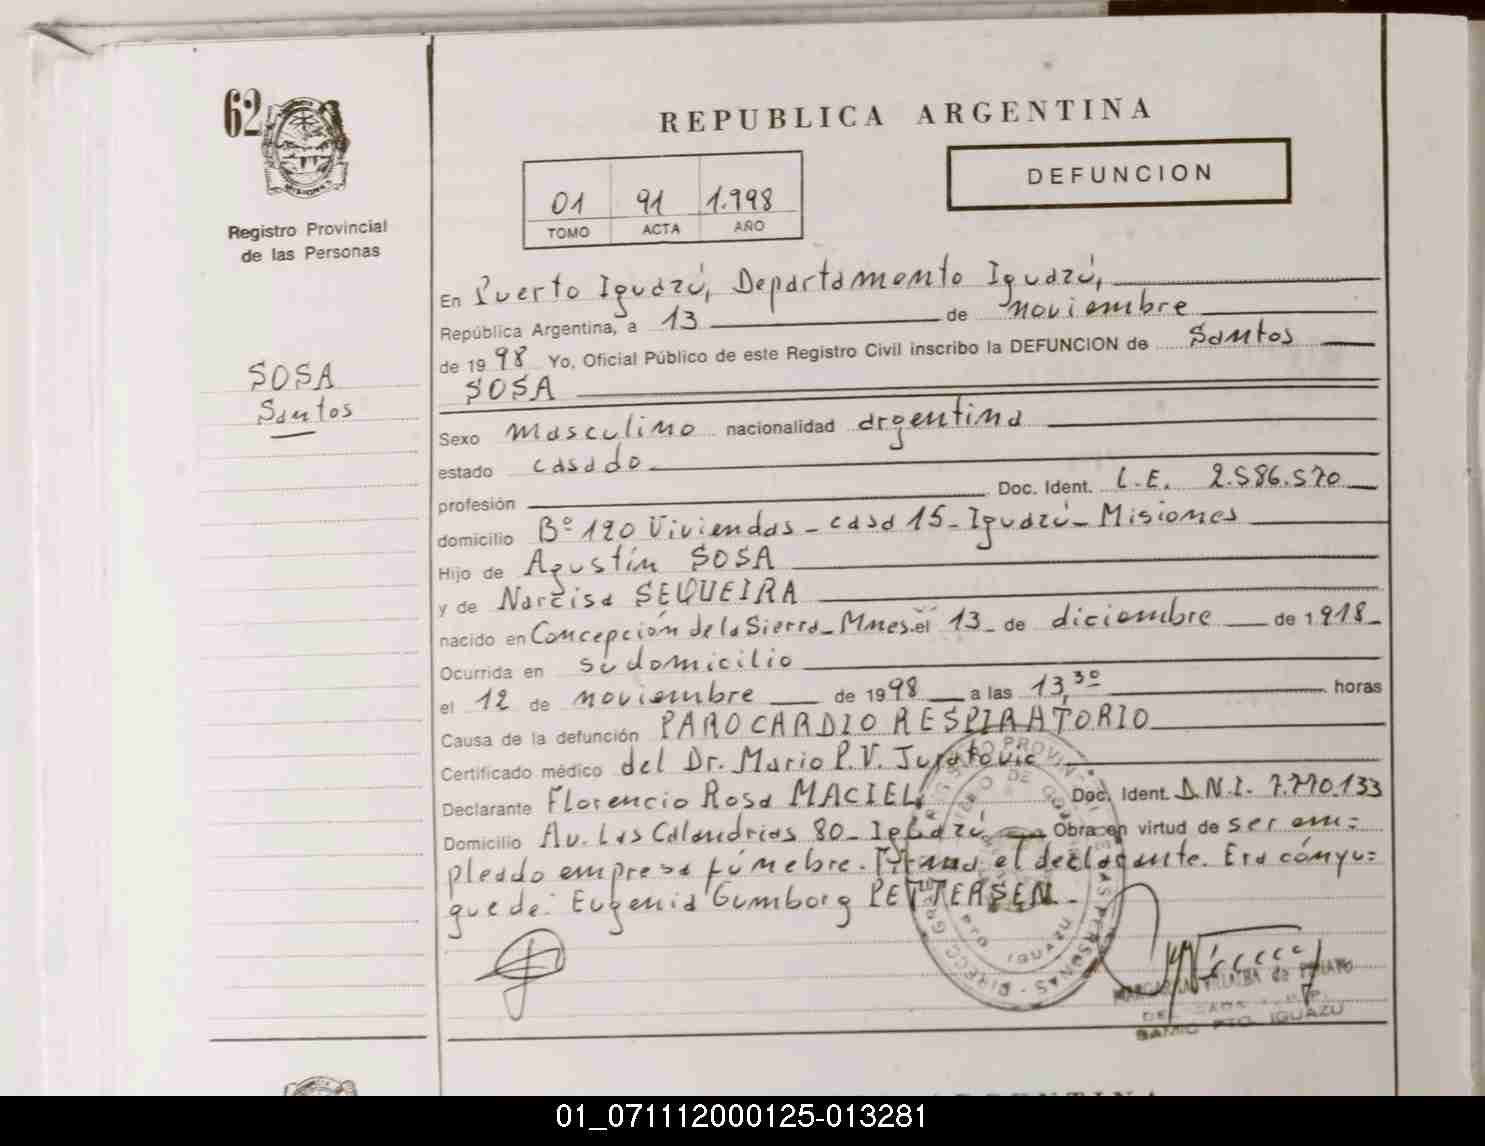 62
MISIONES
Registro Provincial
de las Personas
SOSA
Santos
REPUBLICA ARGENTINA
DEFUNCION
01 91 1.998
TOMO ACTA AÑO
En Puerto Iguazú, Departamento Iguazú,
República Argentina, a 13 de noviembre
de 1998 Yo, Oficial Público de este Registro Civil inscribo la DEFUNCION de Santos
SOSA
Sexo masculino nacionalidad argentina
estado casado
profesión Doc. Ident. L.E. 2.586.570
domicilio Bº 120 Viviendas - casa 15 - Iguazú - Misiones
Hijo de Agustín SOSA
y de Narcisa SEQUEIRA
nacido en Concepción de la Sierra - Mnes. el 13 - de diciembre de 1918 -
Ocurrida en su domicilio
el 12 de noviembre de 1998 a las 13,30 horas
Causa de la defunción PARO CARDIO RESPIRATORIO
Certificado médico del Dr. Mario P.V. Juratovic
Declarante Florencio Rosa MACIEL Doc. Ident. D.N.I. 7.770.133
Domicilio Av. Las Calandrias 80 - Iguazú Obra en virtud de ser em=
pleado empresa fúnebre. Firma el declarante. Era cónyu=
gue de: Eugenia Gumborg PETTERSEN -
PTO IGUAZU
PTO. IGUAZU
01_071112000125-013281